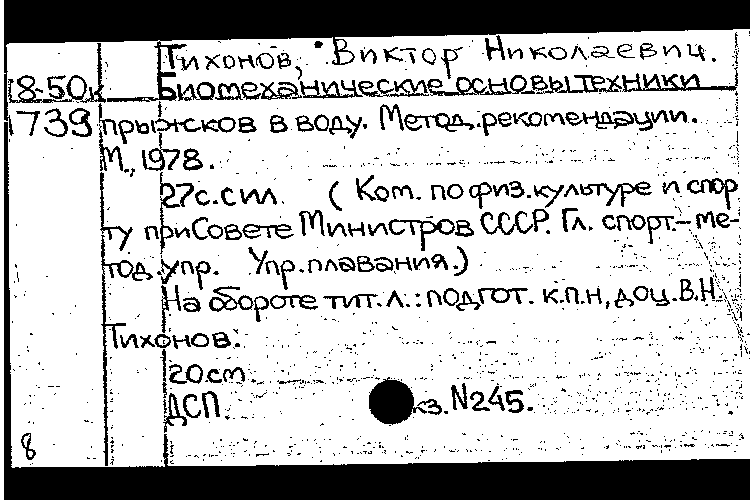 Тихонов, Виктор Николаевич.
18-50к Биомеханические основы техники
1739 прыжсков в воду. Метод. рекомендации.
М., 1978.
27с. с ил. (Ком. по физ. культуре и спор
ту при Совете Министров СССР. Гл. спорт.-ме-
тод. упр. Упр. плавания.)
На обороте тит. л.: подгот. к.п.н, доц. В.Н.
Тихонов.
20 см
ДСП. кз. N245.
8